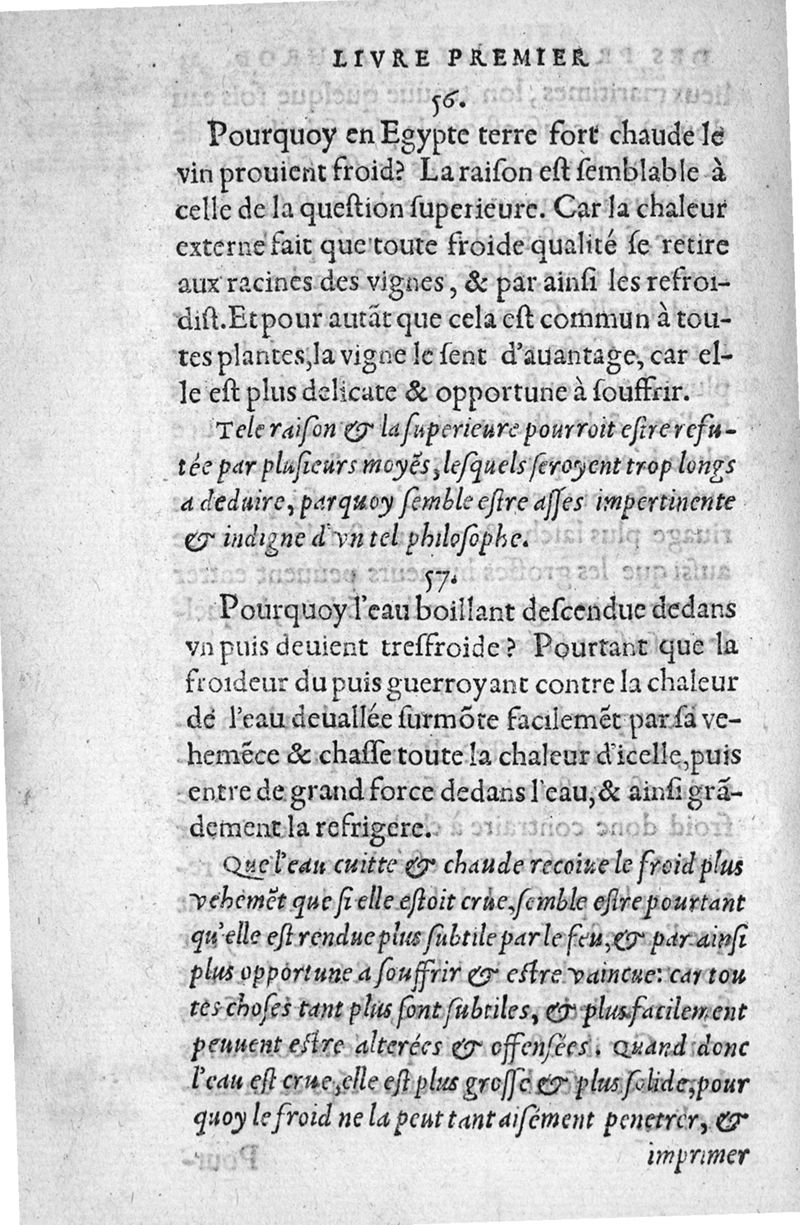 LIVRE PREMIER
56.
Pourquoy en Egypte terre fort chaude le
vin prouient froid? La raison est semblable à
celle de la question superieure. Car la chaleur
externe fait que toute froide qualité se retire
aux racines des vignes, & par ainsi les refroi-
dist. Et pour autãt que cela est commun à tou-
tes plantes, la vigne le sent d'auantage, car el-
le est plus delicate & opportune à souffrir.
Tele raison & la superieure pourroit estre refu-
tée par plusieurs moyẽs, lesquels seroyent trop longs
a deduire, parquoy semble estre asses impertinente
& indigne d'vn tel philosophe.
57.
Pourquoy l'eau boillant descendue dedans
vn puis deuient tresfroide? Pourtant que la
froideur du puis guerroyant contre la chaleur
de l'eau deuallée surmõte facilemẽt par sa ve-
hemẽce & chasse toute la chaleur d'icelle, puis
entre de grand force dedans l'eau, & ainsi grã-
dement la refrigere.
Que l'eau cuitte & chaude recoiue le froid plus
vehemẽt que si elle estoit crue, semble estre pourtant
qu'elle est rendue plus subtile par le feu, & par ainsi
plus opportune a souffrir & estre vaincue: car tou
tes choses tant plus sont subtiles, & plus facilement
peuuent estre alterées & offensées. Quand donc
l'eau est crue, elle est plus grosse & plus solide, pour
quoy le froid ne la peut tant aisément penetrer, &
imprimer